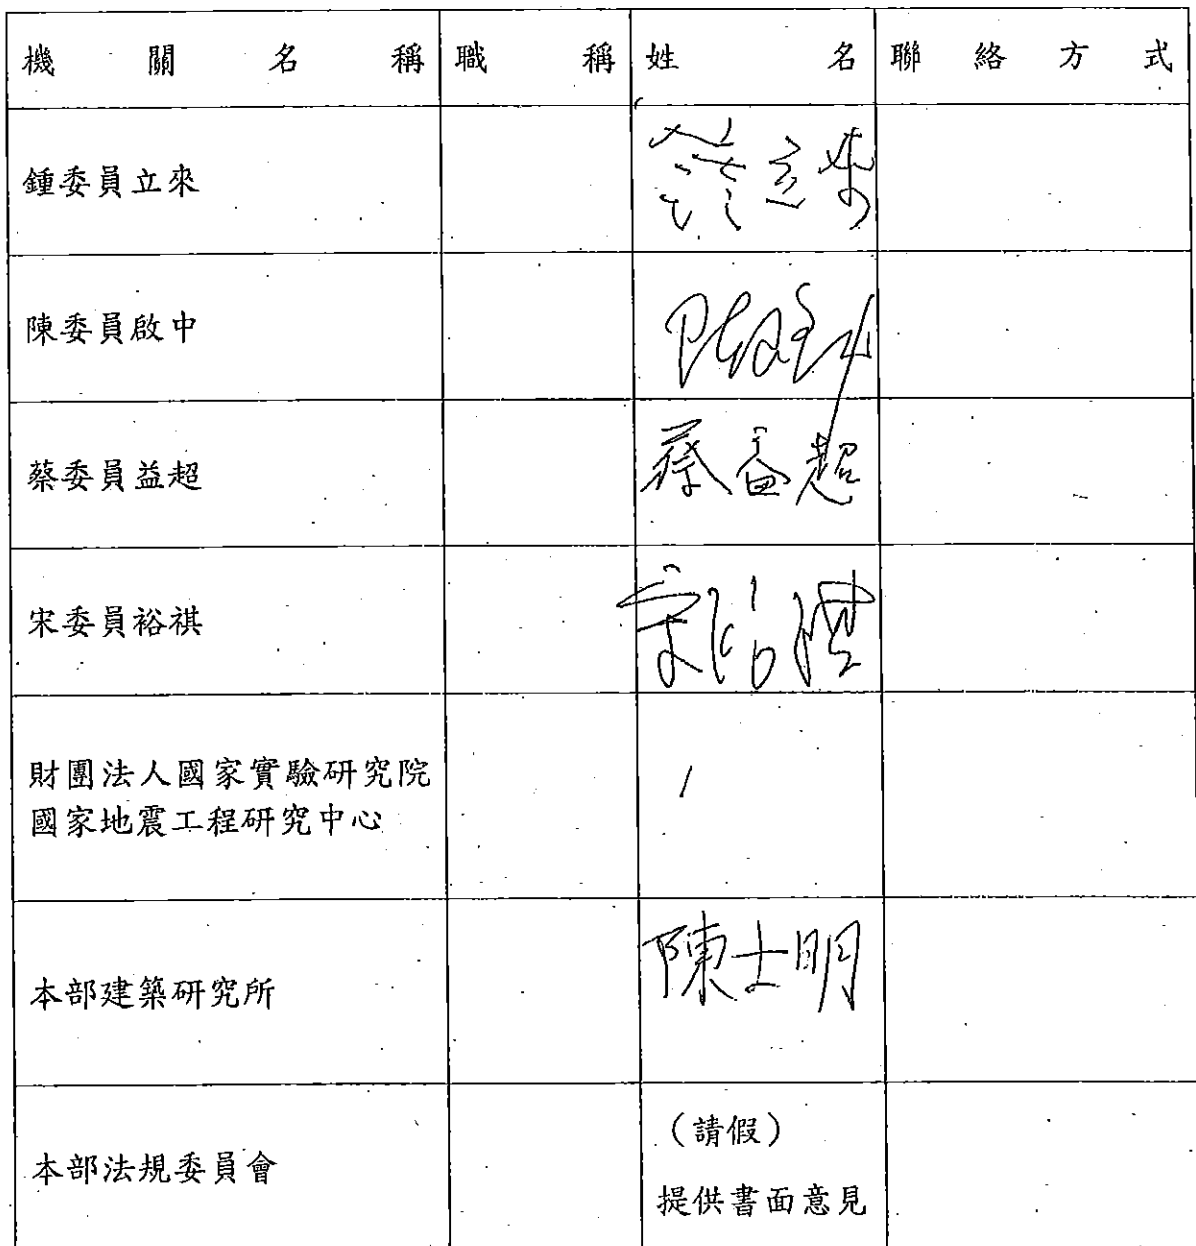 機關名稱 職稱 姓名 聯絡方式
鍾委員立來 鍾立來
陳委員啟中 陳啟中
蔡委員益超 蔡益超
宋委員裕祺 宋裕祺
財團法人國家實驗研究院
國家地震工程研究中心
本部建築研究所 陳士明
本部法規委員會 (請假)
提供書面意見